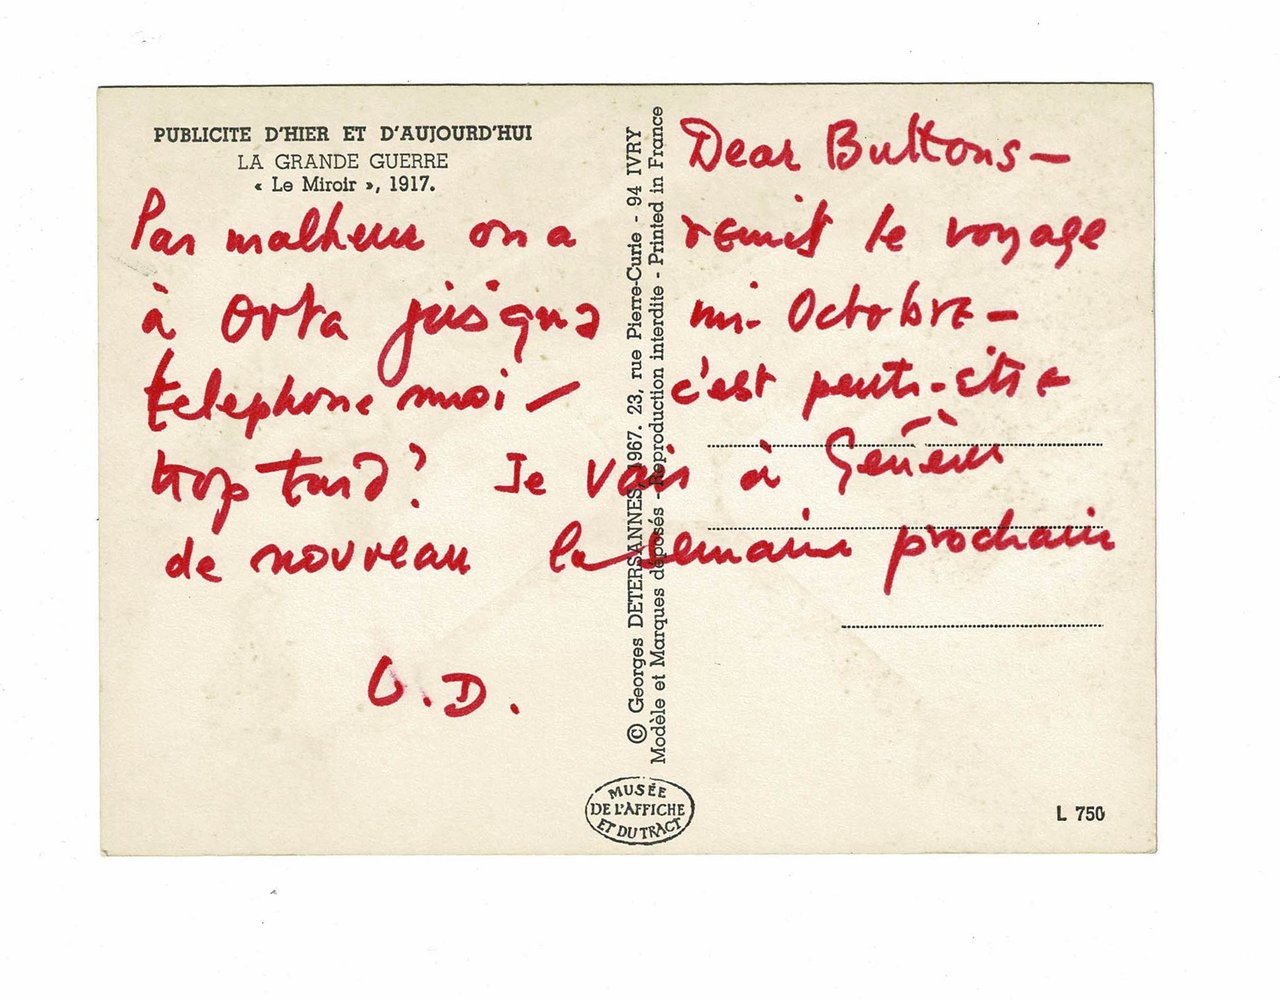 PUBLICITE D'HIER ET D'AUJOURD'HUI
LA GRANDE GUERRE
« Le Miroir », 1917.
Dear Buttons —
Par malheur on a remis le voyage
à Orta jusqua mi-Octobre —
telephone moi — c'est peut-etre
trop tard? Je vais à Genève
de nouveau la semaine prochain
O.D.
© Georges DETERSANNES, 1967. 23, rue Pierre-Curie - 94 IVRY
Modèle et Marques déposés - Reproduction interdite - Printed in France
MUSÉE
DE L'AFFICHE
ET DU TRACT
L 750